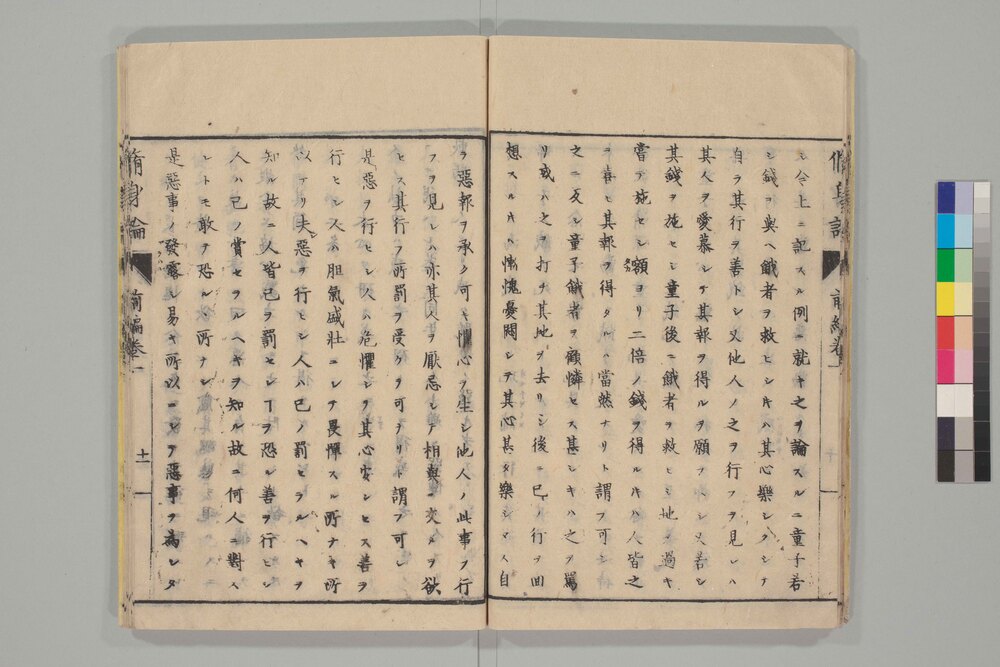 シ今上ニ記スル例ニ就キ之ヲ論スルニ童子若
シ錢ヲ與ヘ餓者ヲ救ヒシ片ハ其心樂シクシテ
自ラ其行ヲ善トシ又他人ノ之ヲ行フヲ見レハ
其人ヲ愛慕シテ其報ヲ得ルヲ願フヘシ又若シ
其錢ヲ施セシ童子後ニ餓者ヲ救ヒシ地ヲ過キ
嘗テ施セシ額ヨリ二倍ノ錢ヲ得ル片ハ人皆之
ヲ喜ヒ其報ヲ得タルハ當然ナリト謂フ可シ
之ニ反シ童子餓者ヲ顧憐セス甚シキハ之ヲ罵
リ或ハ之ヲ打チ其地ヲ去リシ後ニ已ノ行ヲ回
想スル片ハ慚愧憂悶シテ其心甚タ樂シマス自
ラ惡報ヲ承ク可キ懼心ヲ生シ他人ノ此事ヲ行
フヲ見レハ亦其人ヲ厭忌シテ相與ニ交ルヲ欲
セス其行ヲ所罰ヲ受ク可ヲリト謂フ可シ
是惡ヲ行ヒシ人ハ危懼シテ其心安シセス善ヲ
行ヒシ人ハ胆氣盛壯ニシテ畏憚スル所ナキ所
以ナリ夫惡ヲ行ヒシ人ハ已ノ罰セラルヘキヲ
知ル故ニ人皆己ヲ罰センヿヲ恐ル善ヲ行ヒシ
人ハ己ノ賞セラルヘキヲ知ル故ニ何人ニ對ス
ルトモ敢テ恐ルヽ所ナシ
是惡事ノ發露シ易キ所以ニシテ惡事ヲ爲シタ
脩身論
前編卷一
十一